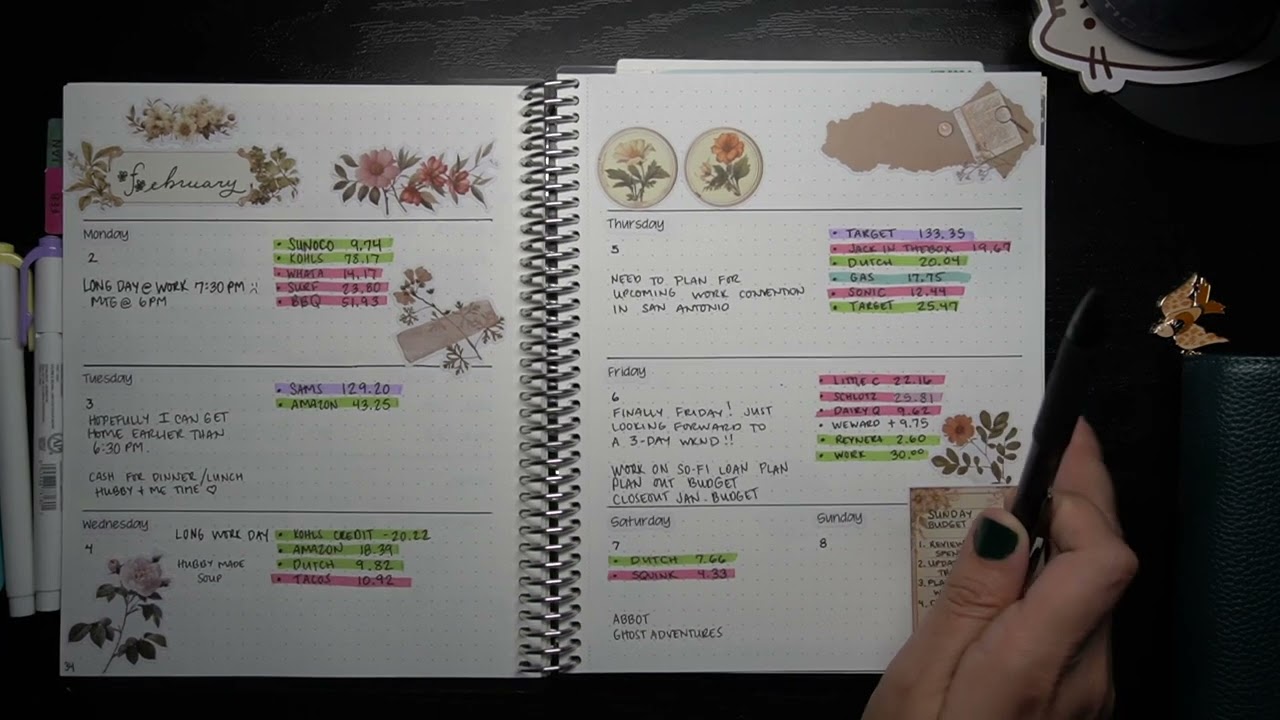 February
Monday
2
LONG DAY @ WORK 7:30 PM :(
MTG @ 6 PM
• SUNOCO 9.74
• KOHLS 78.17
• WHATA 14.17
• SURF 23.80
• BBQ 51.93
Tuesday
3
HOPEFULLY I CAN GET
HOME EARLIER THAN
6:30 PM.
CASH FOR DINNER/LUNCH
HUBBY + ME TIME ♡
• SAMS 129.20
• AMAZON 43.25
Wednesday
4
LONG WORK DAY
HUBBY MADE
SOUP
• KOHLS CREDIT -20.22
• AMAZON 18.39
• DUTCH 9.82
• TACOS 10.92
34
Thursday
5
NEED TO PLAN FOR
UPCOMING WORK CONVENTION
IN SAN ANTONIO
• TARGET 133.35
• JACK IN THE BOX 19.67
• DUTCH 20.04
• GAS 17.75
• SONIC 12.44
• TARGET 25.47
Friday
6
FINALLY FRIDAY! JUST
LOOKING FORWARD TO
A 3-DAY WKND!!
WORK ON SO-FI LOAN PLAN
PLAN OUT BUDGET
CLOSEOUT JAN. BUDGET
• LITTLE C 22.16
• SCHLOTZ 25.81
• DAIRY Q 9.62
• WEWARD + 9.75
• REYNERA 2.60
• WORK 30.00
Saturday
7
• DUTCH 7.66
• SQUINK 4.33
ABBOT
GHOST ADVENTURES
Sunday
8
SUNDAY
BUDGET
1. REVIEW
SPEN
2. UPDA
TR
3. PLA
W
4.